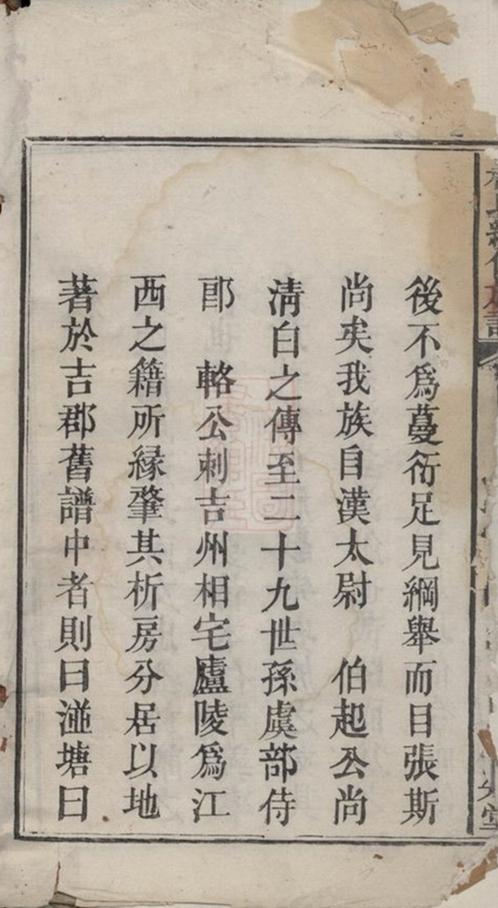 後不爲蔓衍足見綱舉而目張斯
尚矣我族自漢太尉　伯起公尚
淸白之傳至二十九世孫虞部侍
郎　輅公刺吉州相宅廬陵爲江
西之籍所縁肇其析房分居以地
著於吉郡舊譜中者則曰湴塘曰